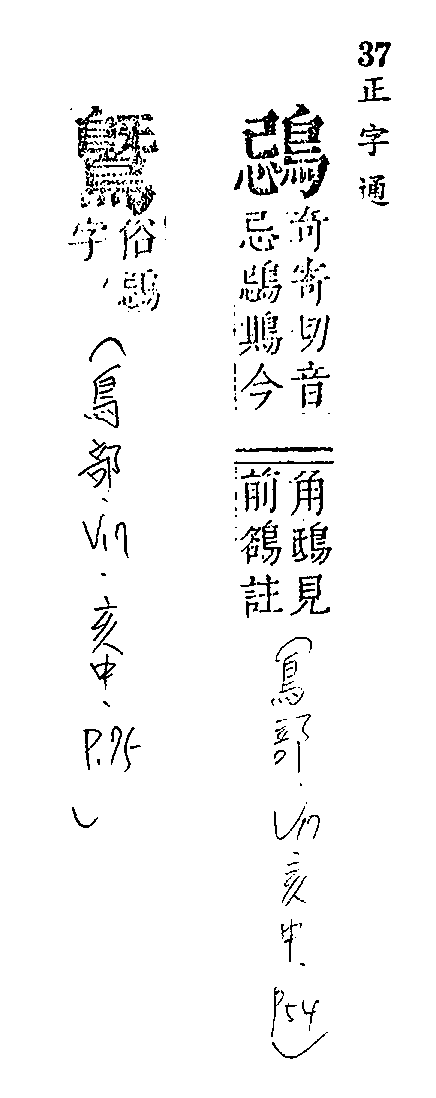 37正字通
鵋
竒寄切音
忌鵋今
角鴟見
前鵅註
(鳥部·V17亥中·P54)
俗鵋
字
(鳥部·V17·亥中·P.75)